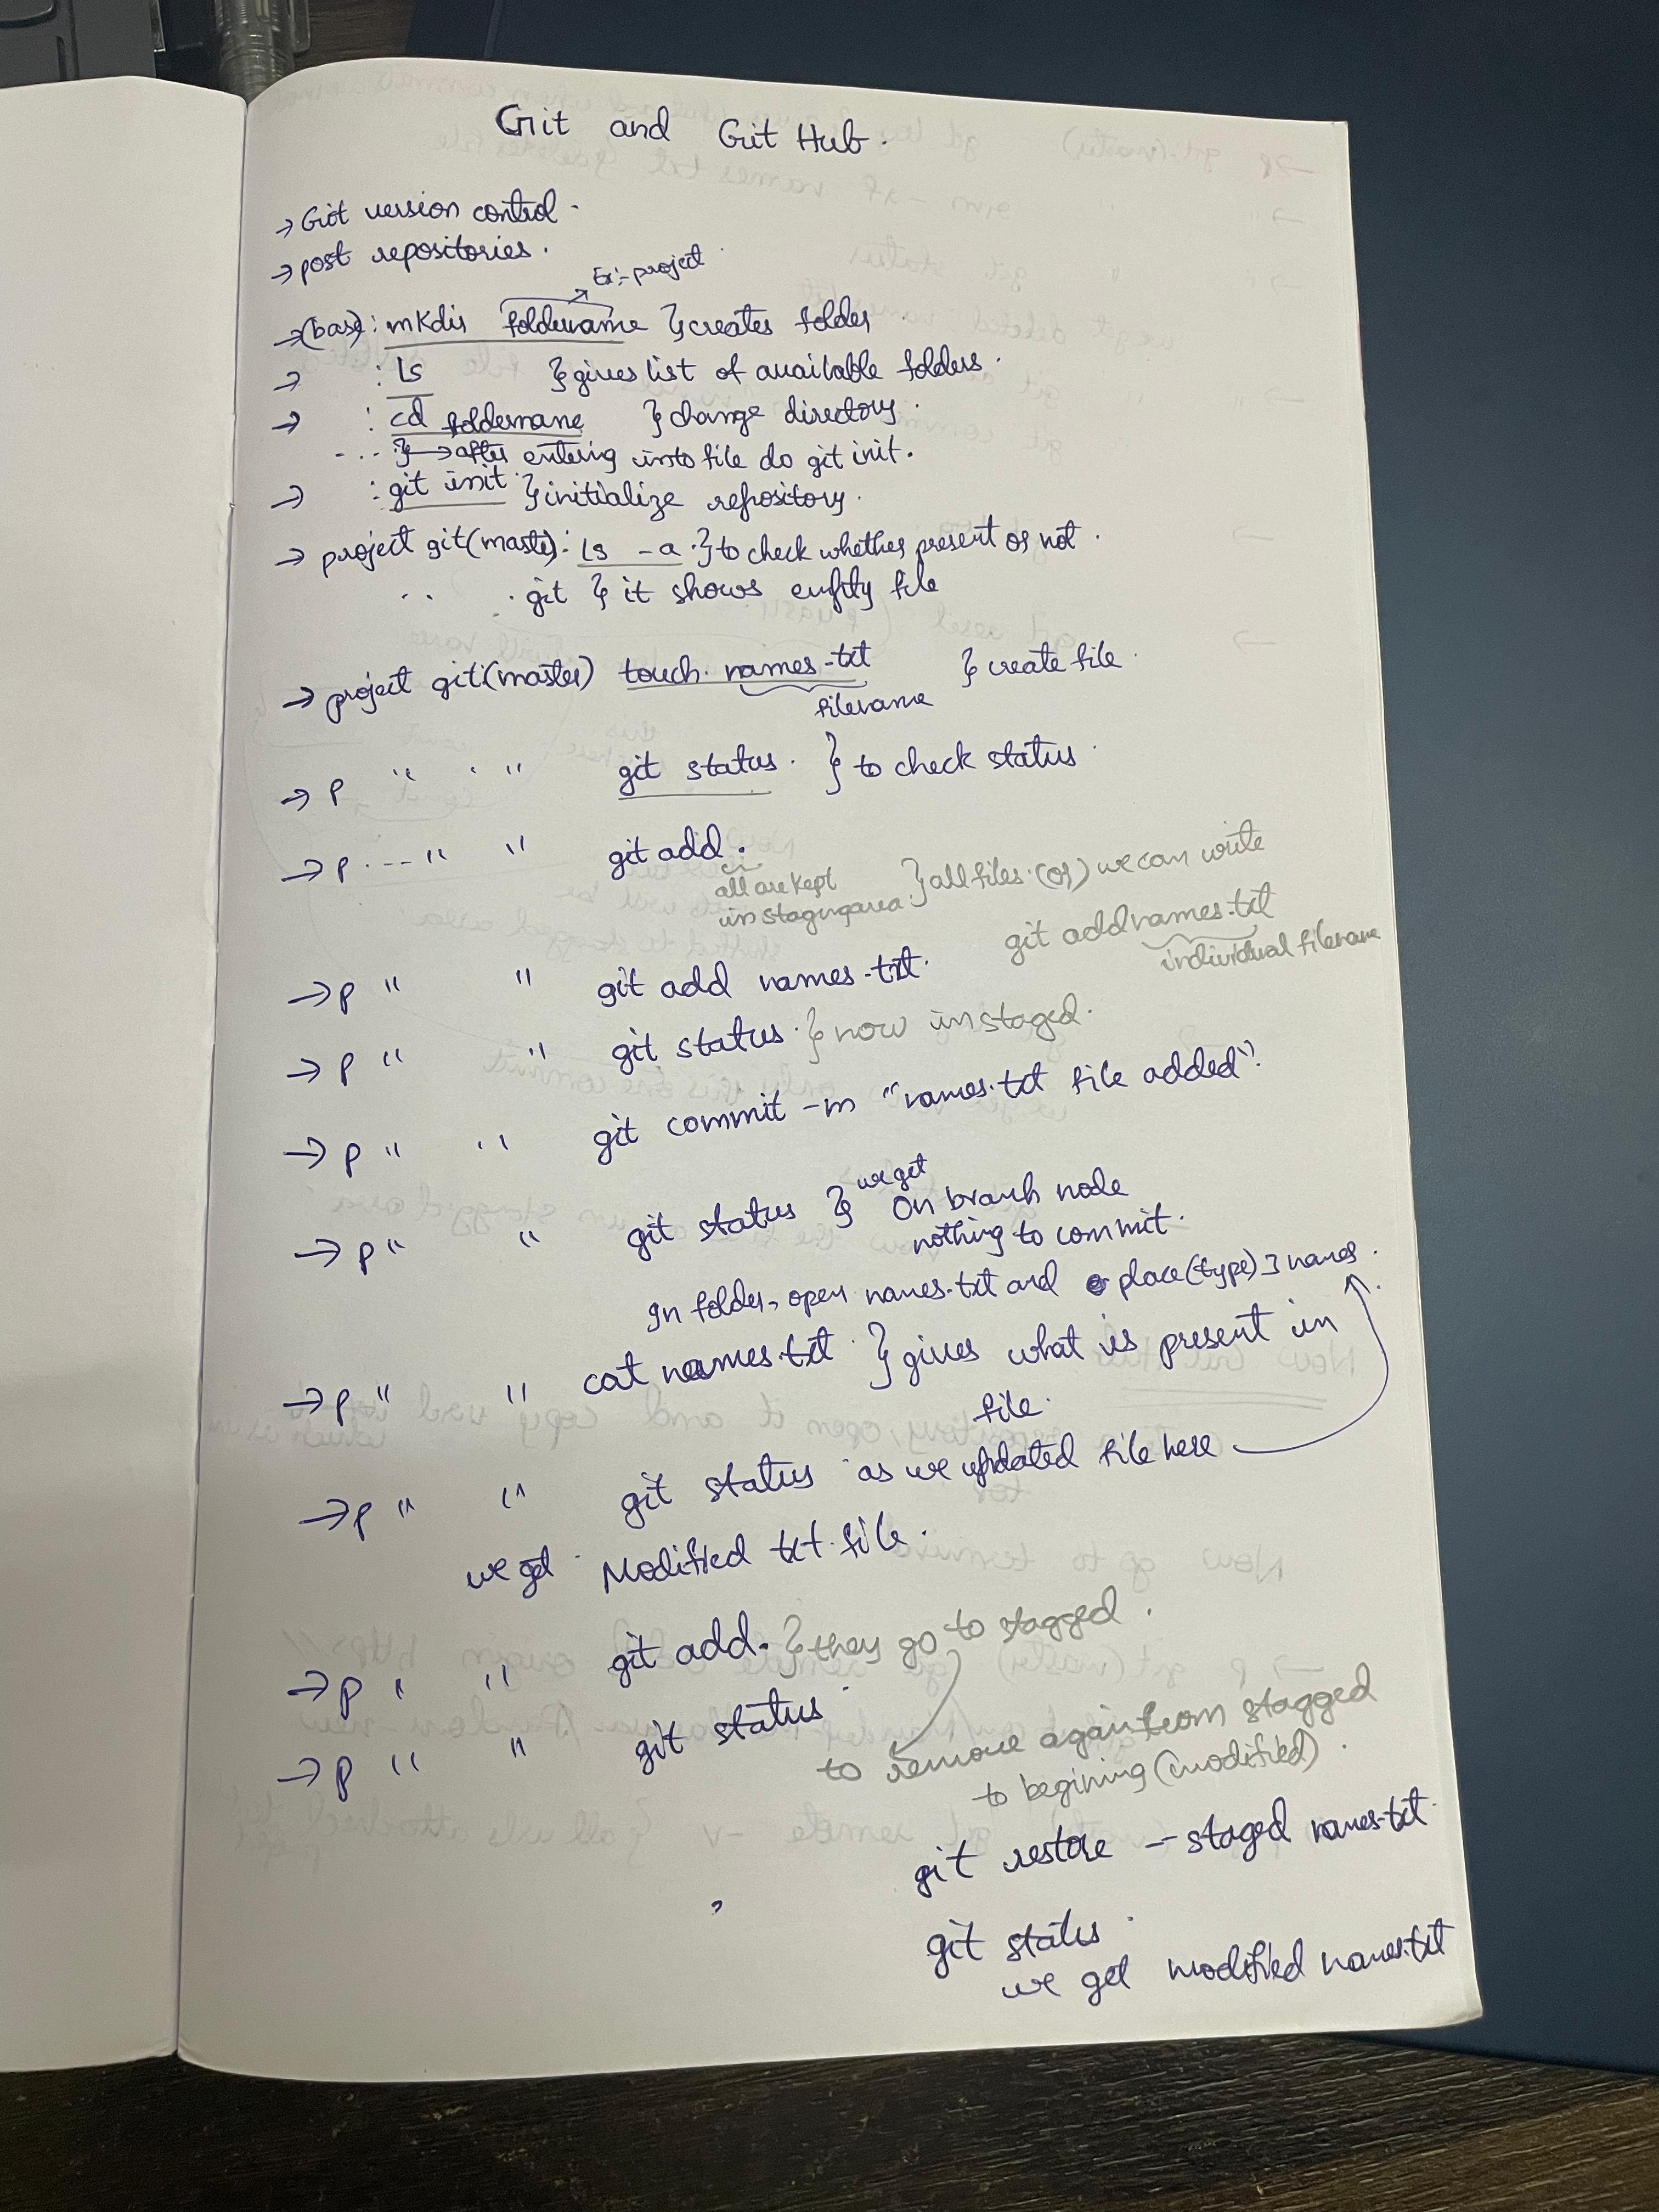 Git and GitHub.
→ Git version control.
→ post repositories.
Ex:- project
→ (base): mkdir foldername } creates folder
→ : ls } gives list of available folders.
→ : cd foldername } change directory.
---- } → after entering into file do git init.
→ : git init } initialize repository.
→ project git(master): ls -a } to check whether present or not.
.. .git } it shows empty file
→ project git:(master) touch names.txt } create file.
filename
→ p " " git status. } to check status
→ p ---- " " git add .
all are kept in staging area } all files. (or) we can write
git add names.txt
individual filename
→ p " " git add names.txt.
→ p " " git status } now in staged.
→ p " " git commit -m "names.txt file added"
→ p " " git status } we get On branch node
nothing to commit.
In folder, open names.txt and place(type) 3 names.
→ p " " cat names.txt } gives what is present in
file.
→ p " " git status as we updated file here
we get Modified txt file.
→ p " " git add . } they go to stagged.
→ p " " git status
to remove again from stagged
to begining (modified).
git restore --staged names.txt
git status.
we get modified names.txt